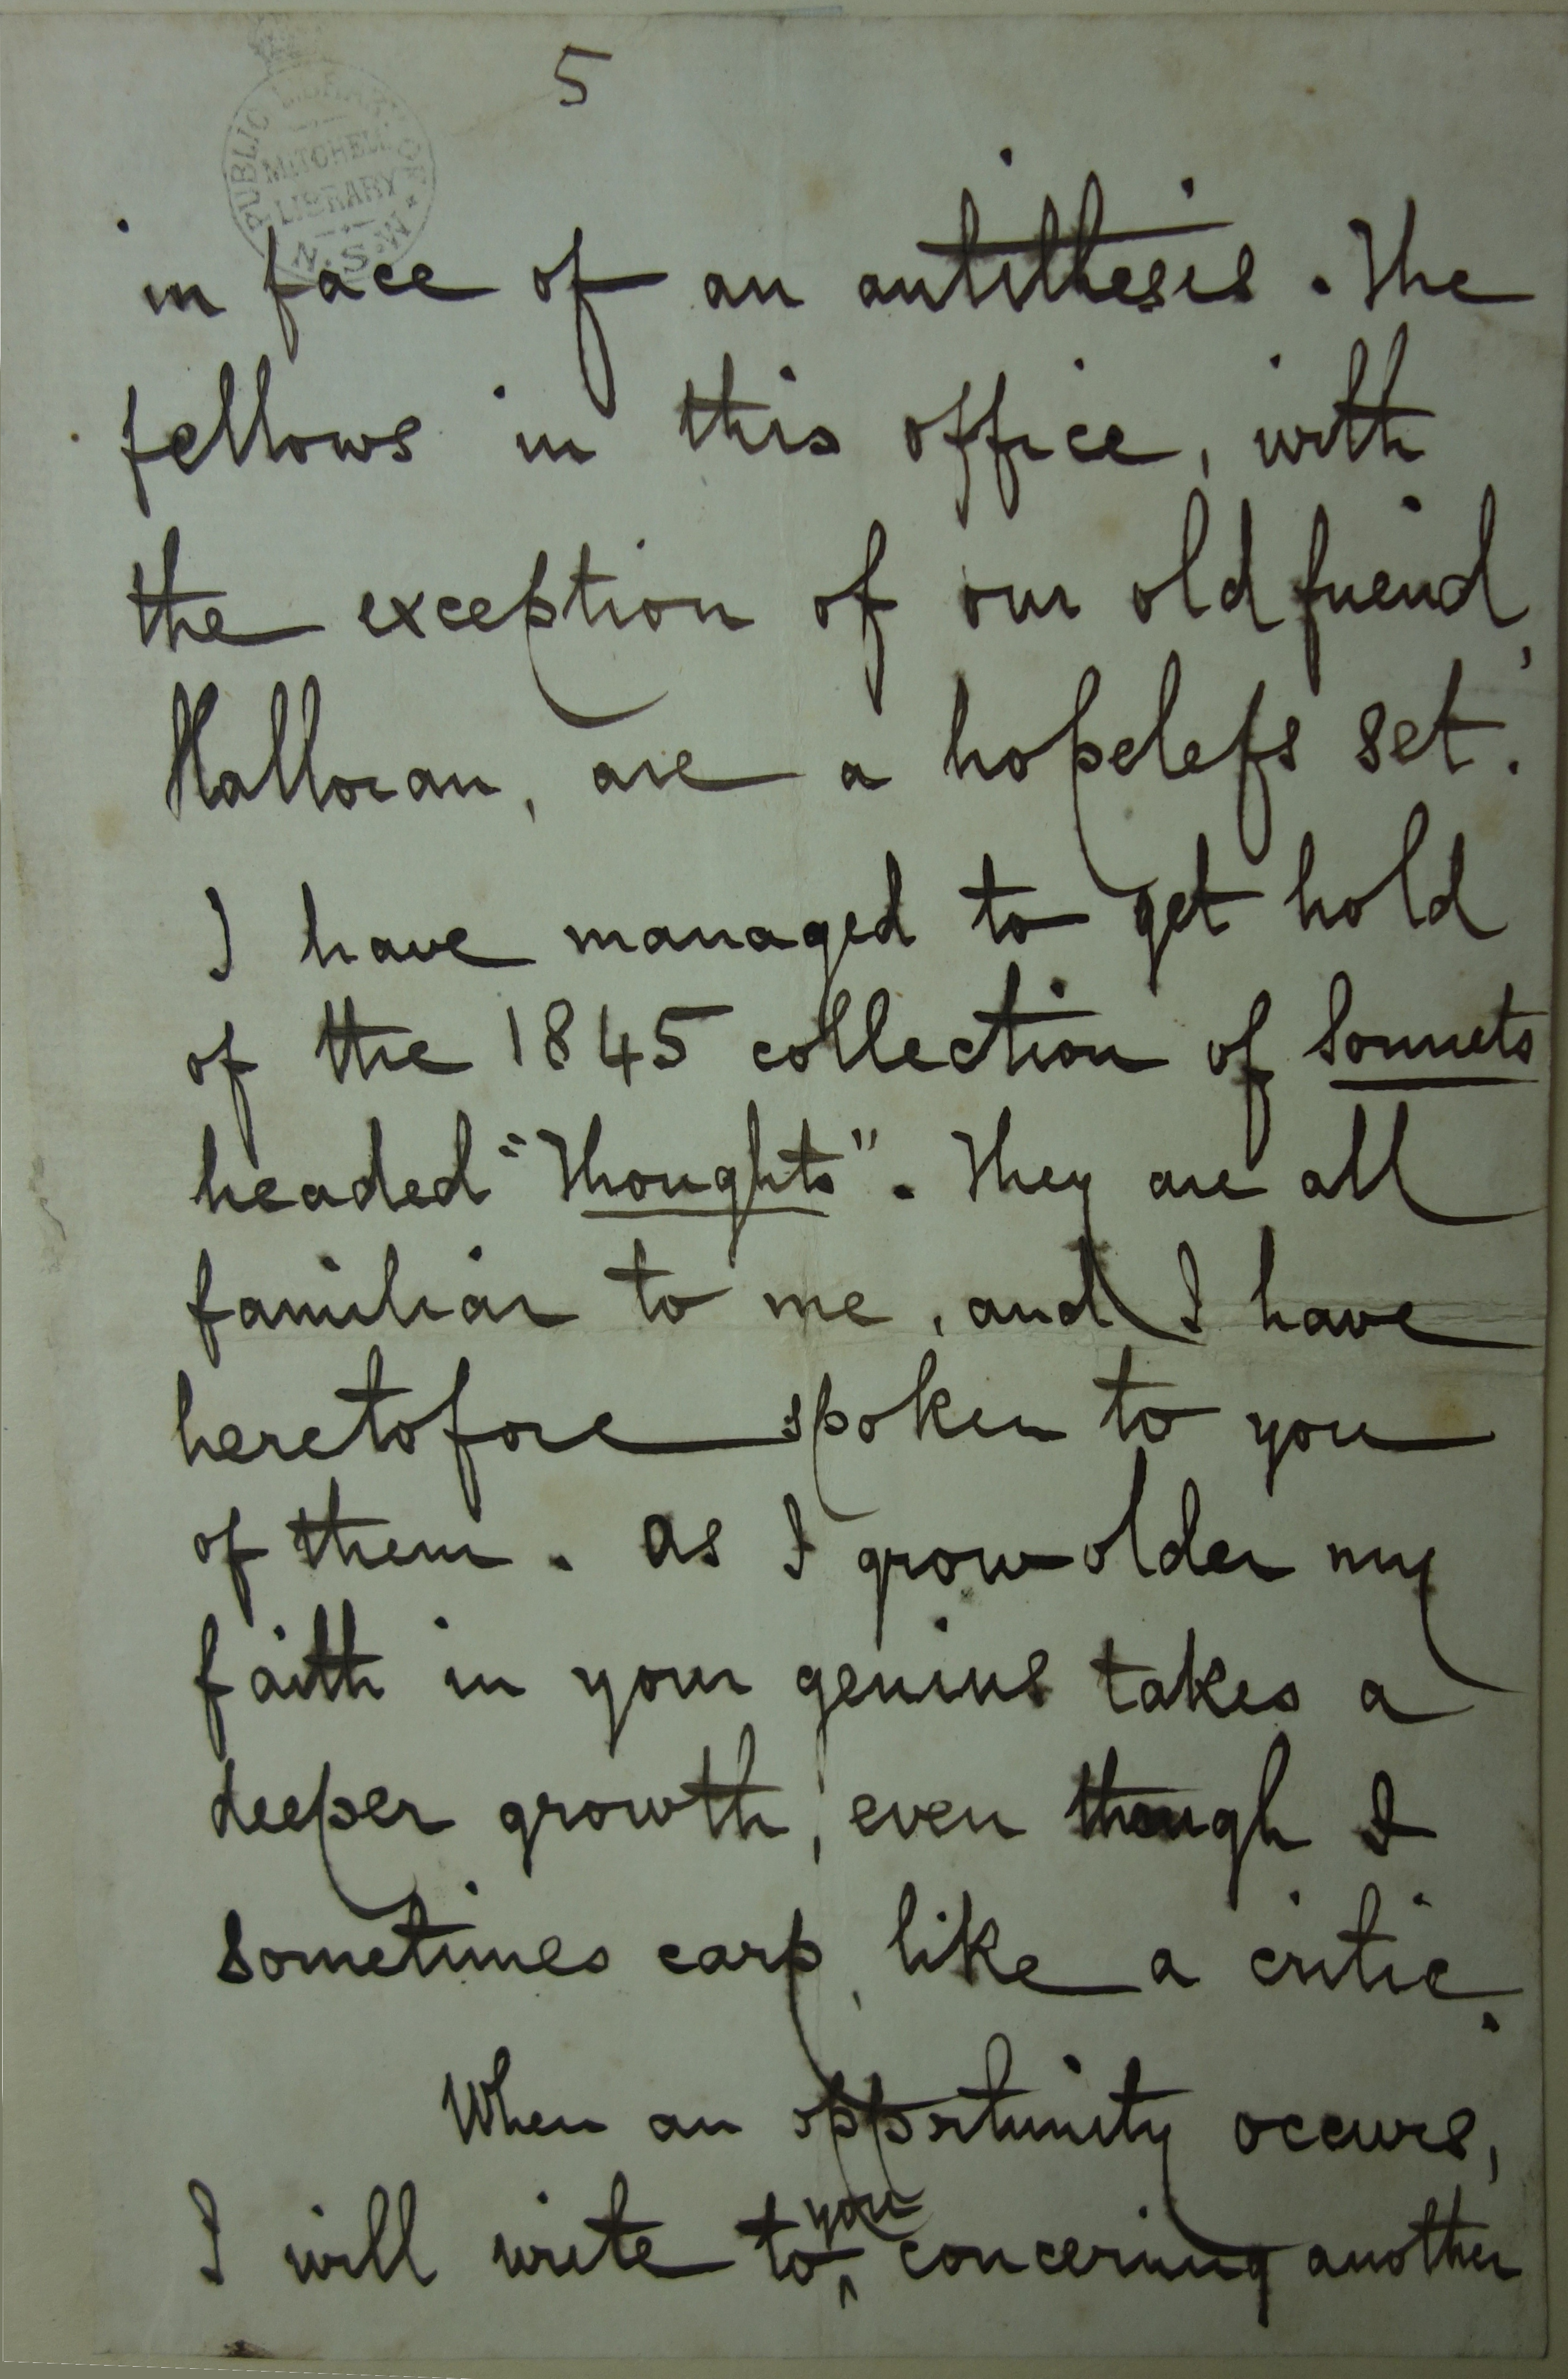 5
PUBLIC LIBRARY OF N.S.W.
MITCHELL
LIBRARY
in face of an antithesis. The
fellows in this office, with
the exception of our old friend,
Halloran, are a hopeless set.
I have managed to get hold
of the 1845 collection of Sonnets
headed "Thoughts". They are all
familiar to me, and I have
heretofore spoken to you
of them. As I grow older my
faith in your genius takes a
deeper growth, even though I
sometimes carp, like a critic.
When an opportunity occurs,
I will write to you concerning another